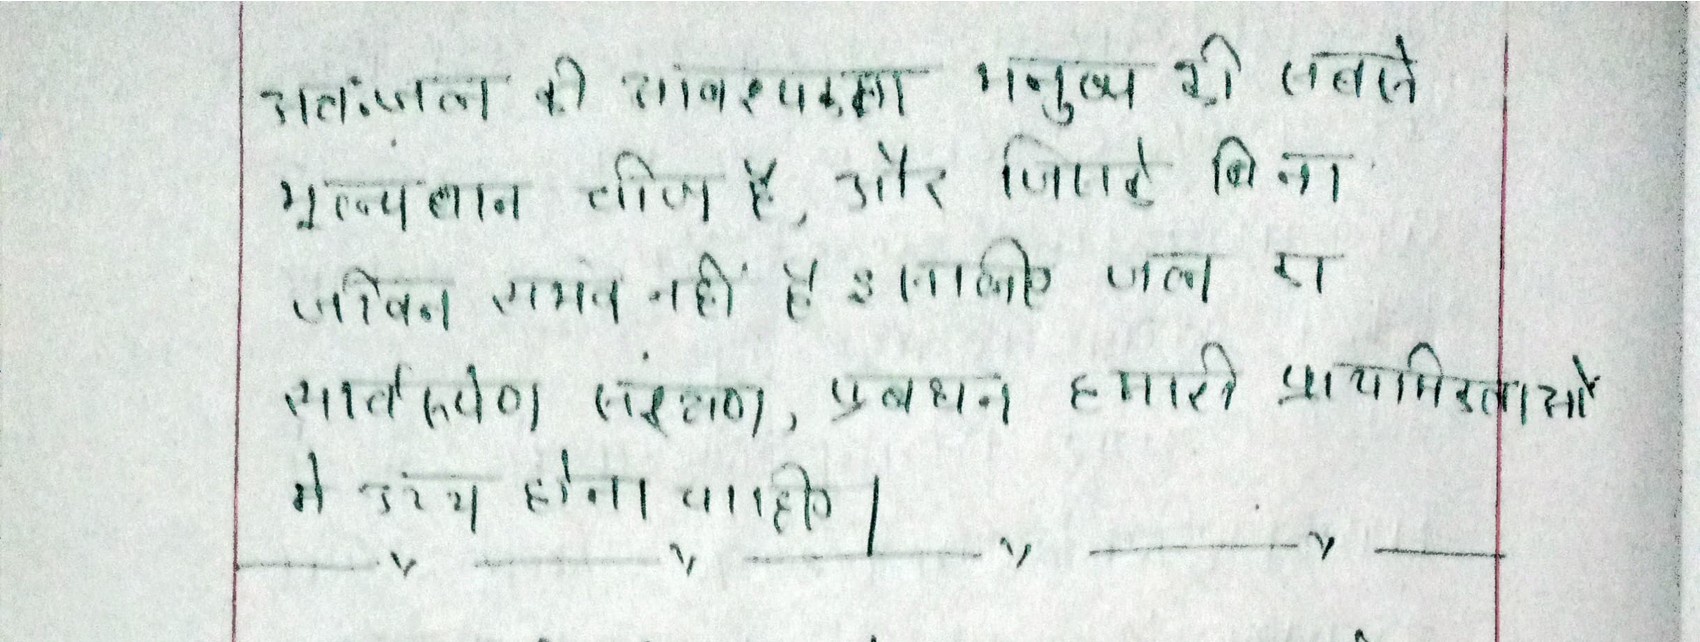 अतः जल की आवश्यकता मनुष्य की सबसे
मूल्यवान चीज है, और जिसके बिना
जीवन सभंव नहीं है इसलिए जल का
संरक्षण, प्रबधन हमारी प्राथमिकताओं
मे उच्च होना चाहिए।